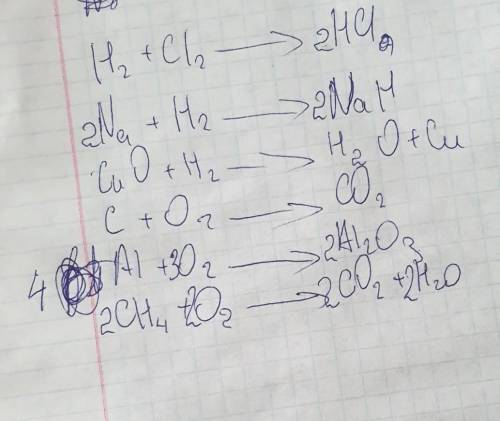 H₂ + Cl₂ → 2HCl
2Na + H₂ → 2NaH
CuO + H₂ → H₂O + Cu
C + O₂ → CO₂
4 Al + 3O₂ → 2Al₂O₃
2CH₄ + 2O₂ → 2CO₂ + 2H₂O